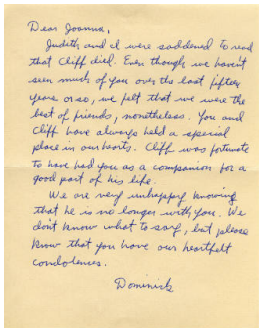 Dear Joanna,
Judith and I were saddened to read
that Cliff died. Even though we haven't
seen much of you over the last fifteen
years or so, we felt that we were the
best of friends, nonetheless. You and
Cliff have always held a special
place in our hearts. Cliff was fortunate
to have had you as a companion for a
good part of his life.
We are very unhappy knowing
that he is no longer with you. We
don't know what to say, but please
know that you have our heartfelt
condolences.
Dominick